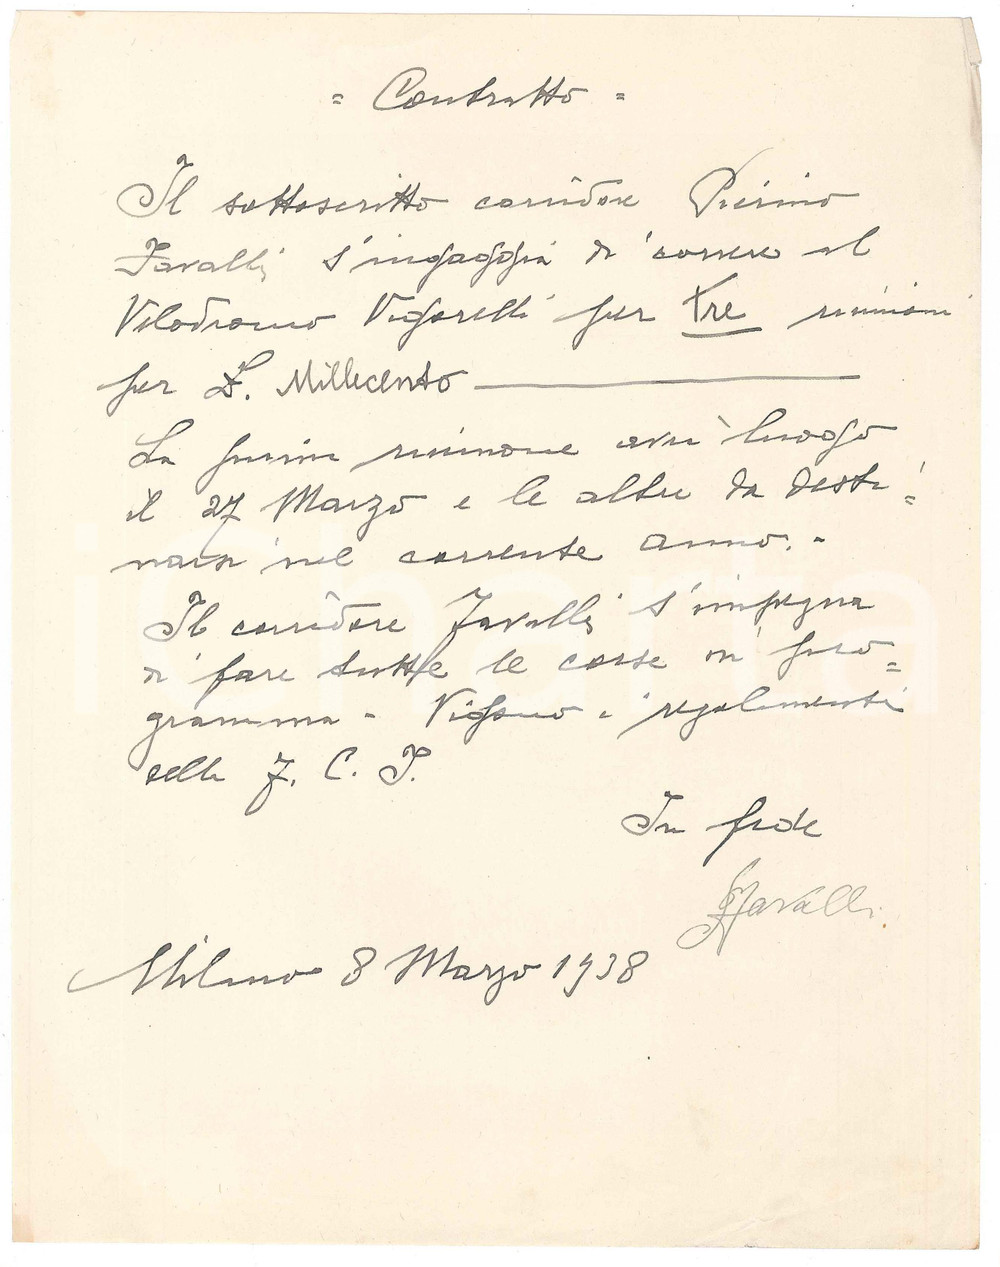 = Contratto =
Il sottoscritto corridore Pierino
Favalli s'ingaggia di correre al
Velodromo Vigorelli per tre riunioni
per L. Millecento
La prima riunione avrà luogo
il 27 Marzo e le altre da desti=
narsi nel corrente anno. -
Il corridore Favalli s'impegna
di fare tutte le corse in pro=
gramma - Vigono i regolamenti
della F. C. I.
In fede
Favalli
Milano 8 Marzo 1938
icharta